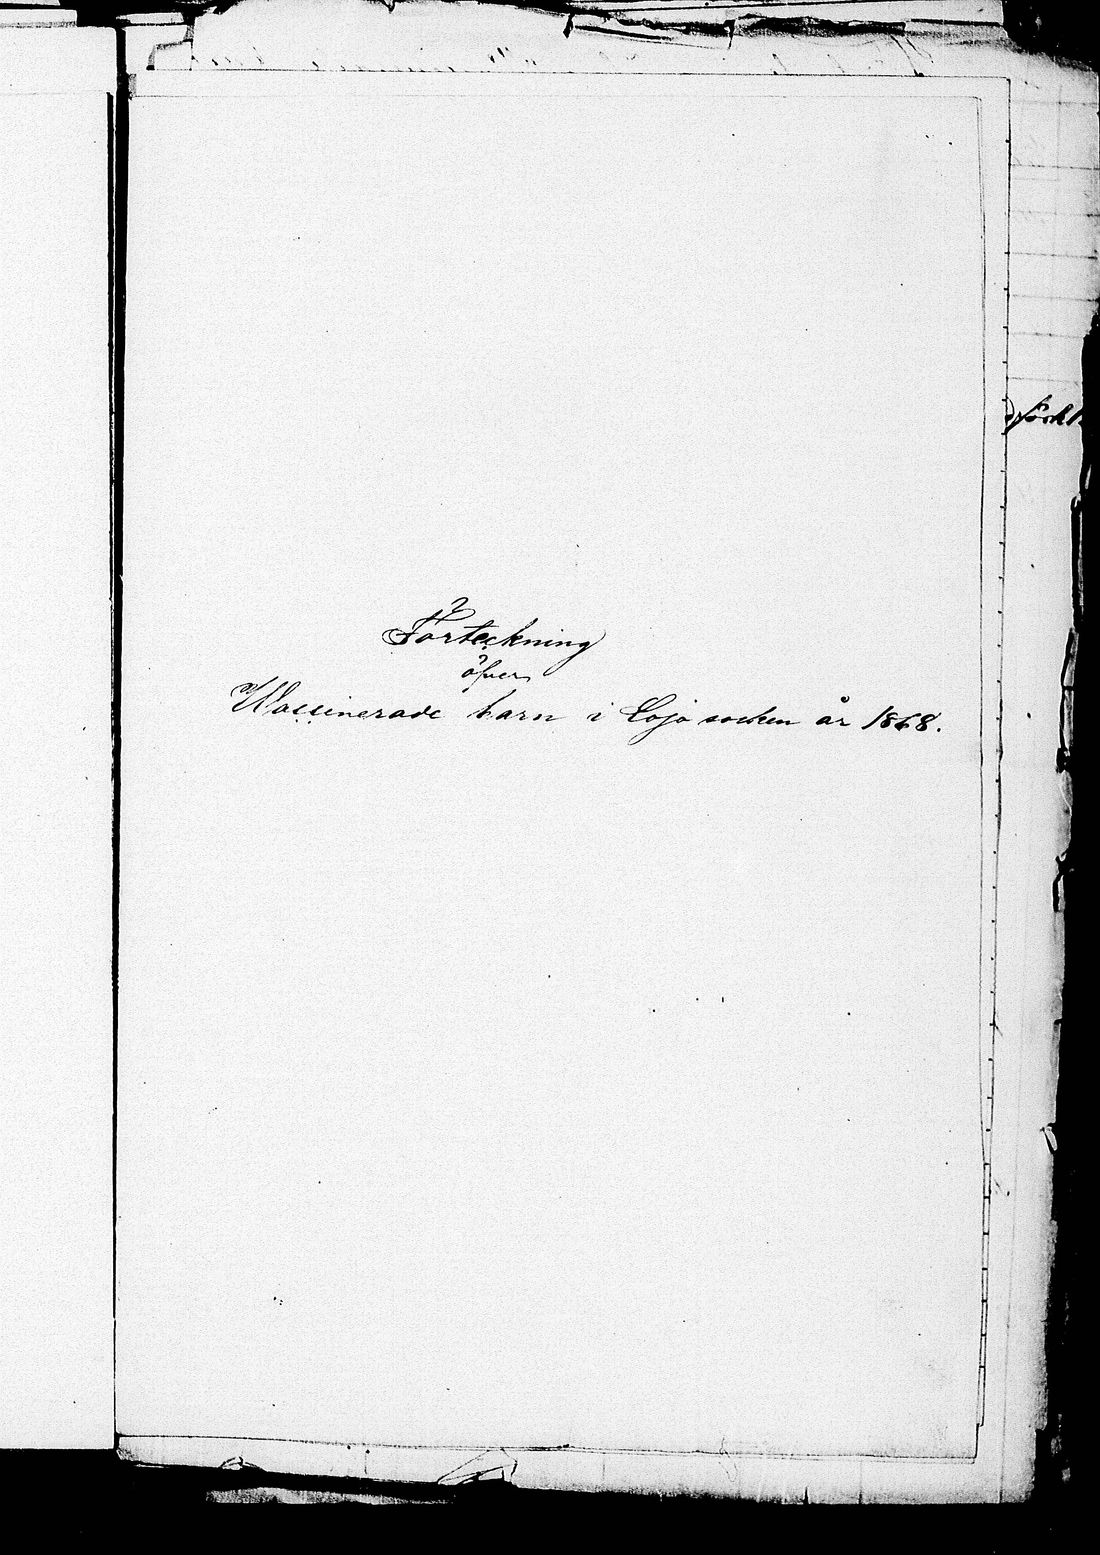 Förteckning
öfver
Waccinerade barn i Lojo socken år 1868.